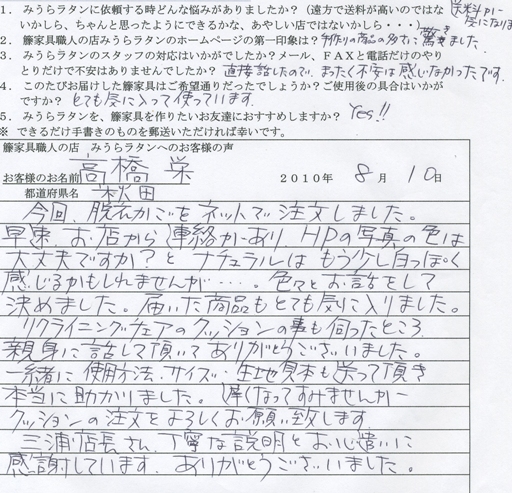 1．みうらラタンに依頼する時どんな悩みがありましたか？（遠方で送料が高いのではな 送料が一
いかしら、ちゃんと思ったようにできるかな、あやしい店ではないかしら・・・） 気になりま
2．籐家具職人の店みうらラタンのホームページの第一印象は？手作りの商品の多さに驚きました。
3．みうらラタンのスタッフの対応はいかがでしたか？メール、FAXと電話だけのやり
とりだけで不安はありませんでしたか？直接話したので、まったく不安は感じなかったです。
4．このたびお届けした籐家具はご希望通りだったでしょうか？ご使用後の具合はいかが
ですか？ とても気に入って使っています。
5．みうらラタンを、籐家具を作りたいお友達におすすめしますか？ Yes!!
※ できるだけ手書きのものを郵送いただければ幸いです。
籐家具職人の店 みうらラタンへのお客様の声
お客様のお名前 高橋 栄 2010年 8月 10日
都道府県名 秋田
今回、脱衣かごをネットで注文しました。
早速、お店から連絡があり HPの写真の色は
大丈夫ですか？と ナチュラルは もう少し白っぽく
感じるかもしれませんが・・・・。色々とお話をして
決めました。届いた商品もとても気に入りました。
リクライニングチェアのクッションの事も伺ったところ、
親身に話して頂いてありがとうございました。
一緒に使用方法、サイズ・生地見本も送って頂き
本当に助かりました。遅くなってすみませんが一
クッションの注文をよろしくお願い致します
三浦店長さん、丁寧な説明とお心遣いに
感謝しています。ありがとうございました。